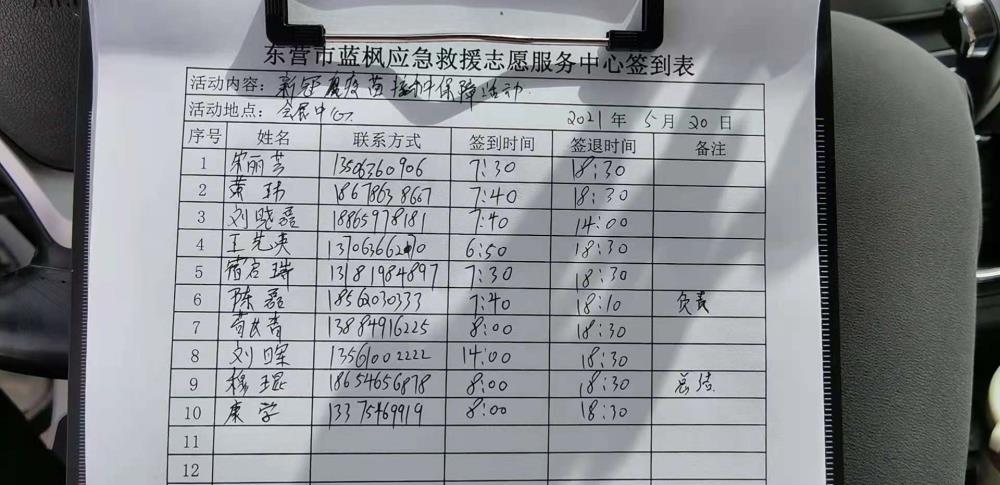 东营市蓝枫应急救援志愿服务中心签到表
活动内容：新冠疫苗接种保障活动
活动地点：会展中心 2021年5月20日
序号 姓名 联系方式 签到时间 签退时间 备注
1 宋丽芸 13506360906 7:30 18:30
2 黄玮 18678638667 7:40 18:30
3 刘晓磊 18865978181 7:40 14:00
4 王先英 6:50 18:30
5 13181984897 7:30 18:30
6 陈磊 18562030333 7:40 18:10 负责
7 13884916225 8:00 18:30
8 刘琛 13561002222 14:00 18:30
9 穆琨 18654656878 8:00 18:30 总结
10 康学 13375469919 8:00 18:30
11
12